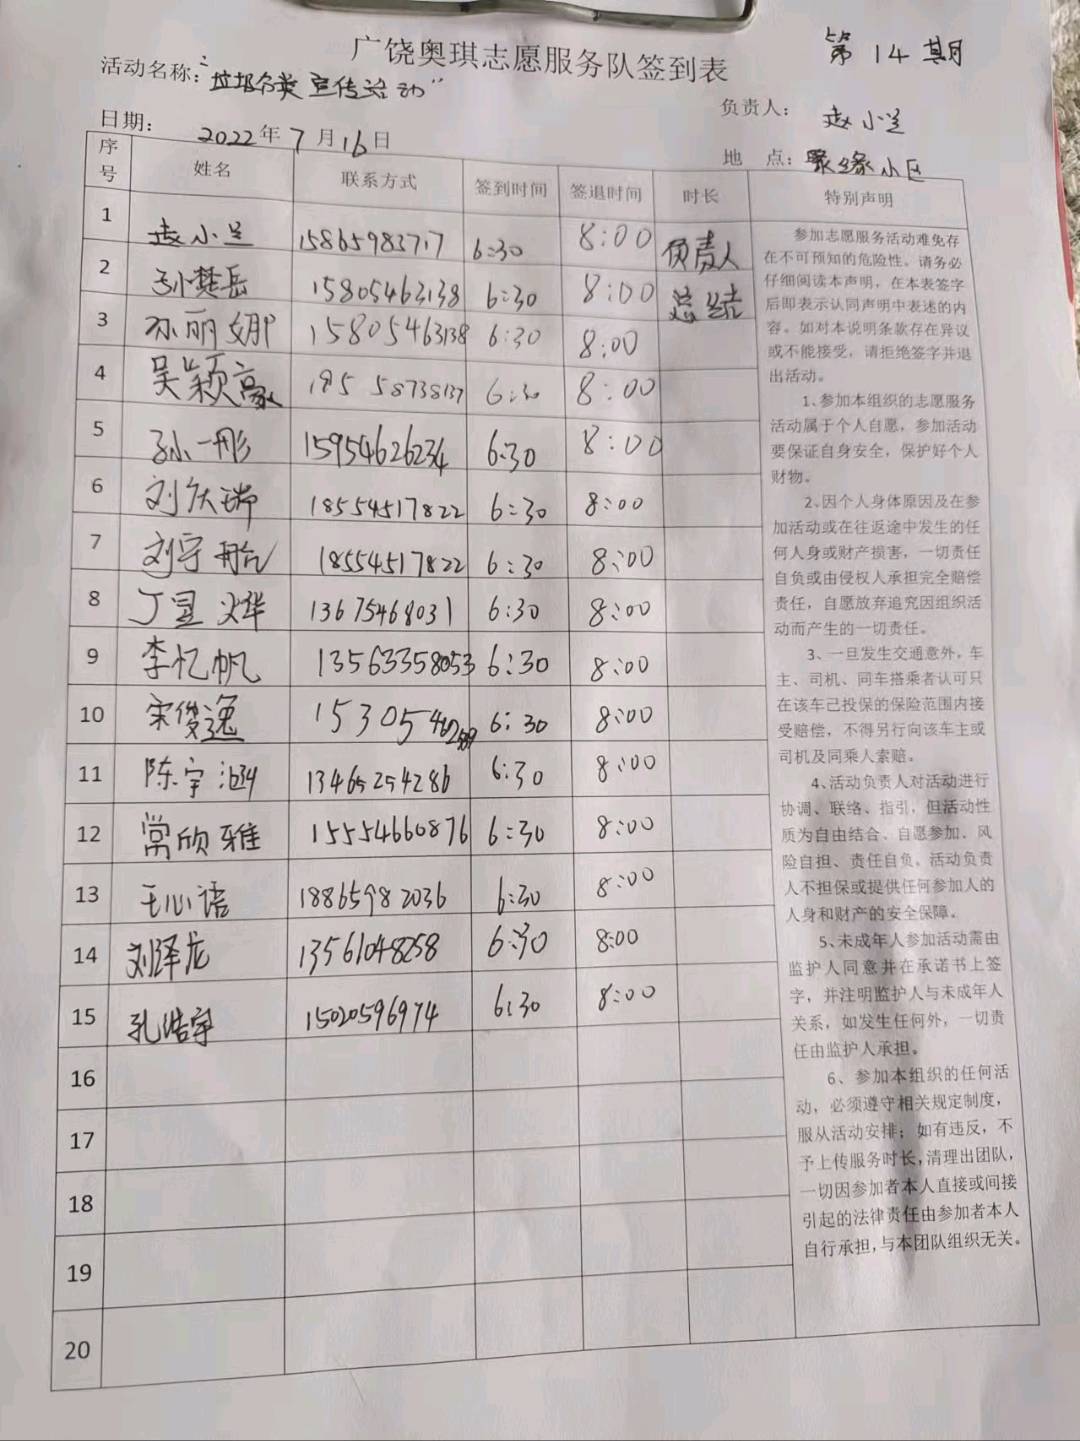 广饶奥琪志愿服务队签到表
第14期
活动名称:"垃圾分类宣传活动"
负责人: 赵小兰
日期: 2022年7月16日
地 点: 聚缘小区
序号 姓名 联系方式 签到时间 签退时间 时长 特别声明
1 赵小兰 15865983717 6:30 8:00 负责人
2 孙楚岳 15805463138 6:30 8:00 总结
3 孙丽娜 15805463138 6:30 8:00
4 吴颖豪 195 58738137 6:30 8:00
5 孙一彤 15954626234 6:30 8:00
6 刘庆瑞 18554517822 6:30 8:00
7 刘宇 18554517822 6:30 8:00
8 丁昱烨 13675468031 6:30 8:00
9 李忆帆 13563358053 6:30 8:00
10 宋俊逸 15305462589 6:30 8:00
11 陈宇涵 13465254286 6:30 8:00
12 常欣雅 15554660876 6:30 8:00
13 王心语 18865982036 6:30 8:00
14 刘泽龙 13561048258 6:30 8:00
15 孔浩宇 15020596974 6:30 8:00
16
17
18
19
20
参加志愿服务活动难免存
在不可预知的危险性。请务必
仔细阅读本声明,在本表签字
后即表示认同声明中表述的内
容。如对本说明条款存在异议
或不能接受,请拒绝签字并退
出活动。
1、参加本组织的志愿服务
活动属于个人自愿,参加活动
要保证自身安全,保护好个人
财物。
2、因个人身体原因及在参
加活动或在往返途中发生的任
何人身或财产损害,一切责任
自负或由侵权人承担完全赔偿
责任,自愿放弃追究因组织活
动而产生的一切责任。
3、一旦发生交通意外,车
主、司机、同车搭乘者认可只
在该车己投保的保险范围内接
受赔偿,不得另行向该车主或
司机及同乘人索赔。
4、活动负责人对活动进行
协调、联络、指引,但活动性
质为自由结合、自愿参加、风
险自担、责任自负。活动负责
人不担保或提供任何参加人的
人身和财产的安全保障。
5、未成年人参加活动需由
监护人同意并在承诺书上签
字,并注明监护人与未成年人
关系,如发生任何外,一切责
任由监护人承担。
6、参加本组织的任何活
动,必须遵守相关规定制度,
服从活动安排;如有违反,不
予上传服务时长,清理出团队,
一切因参加者本人直接或间接
引起的法律责任由参加者本人
自行承担,与本团队组织无关。